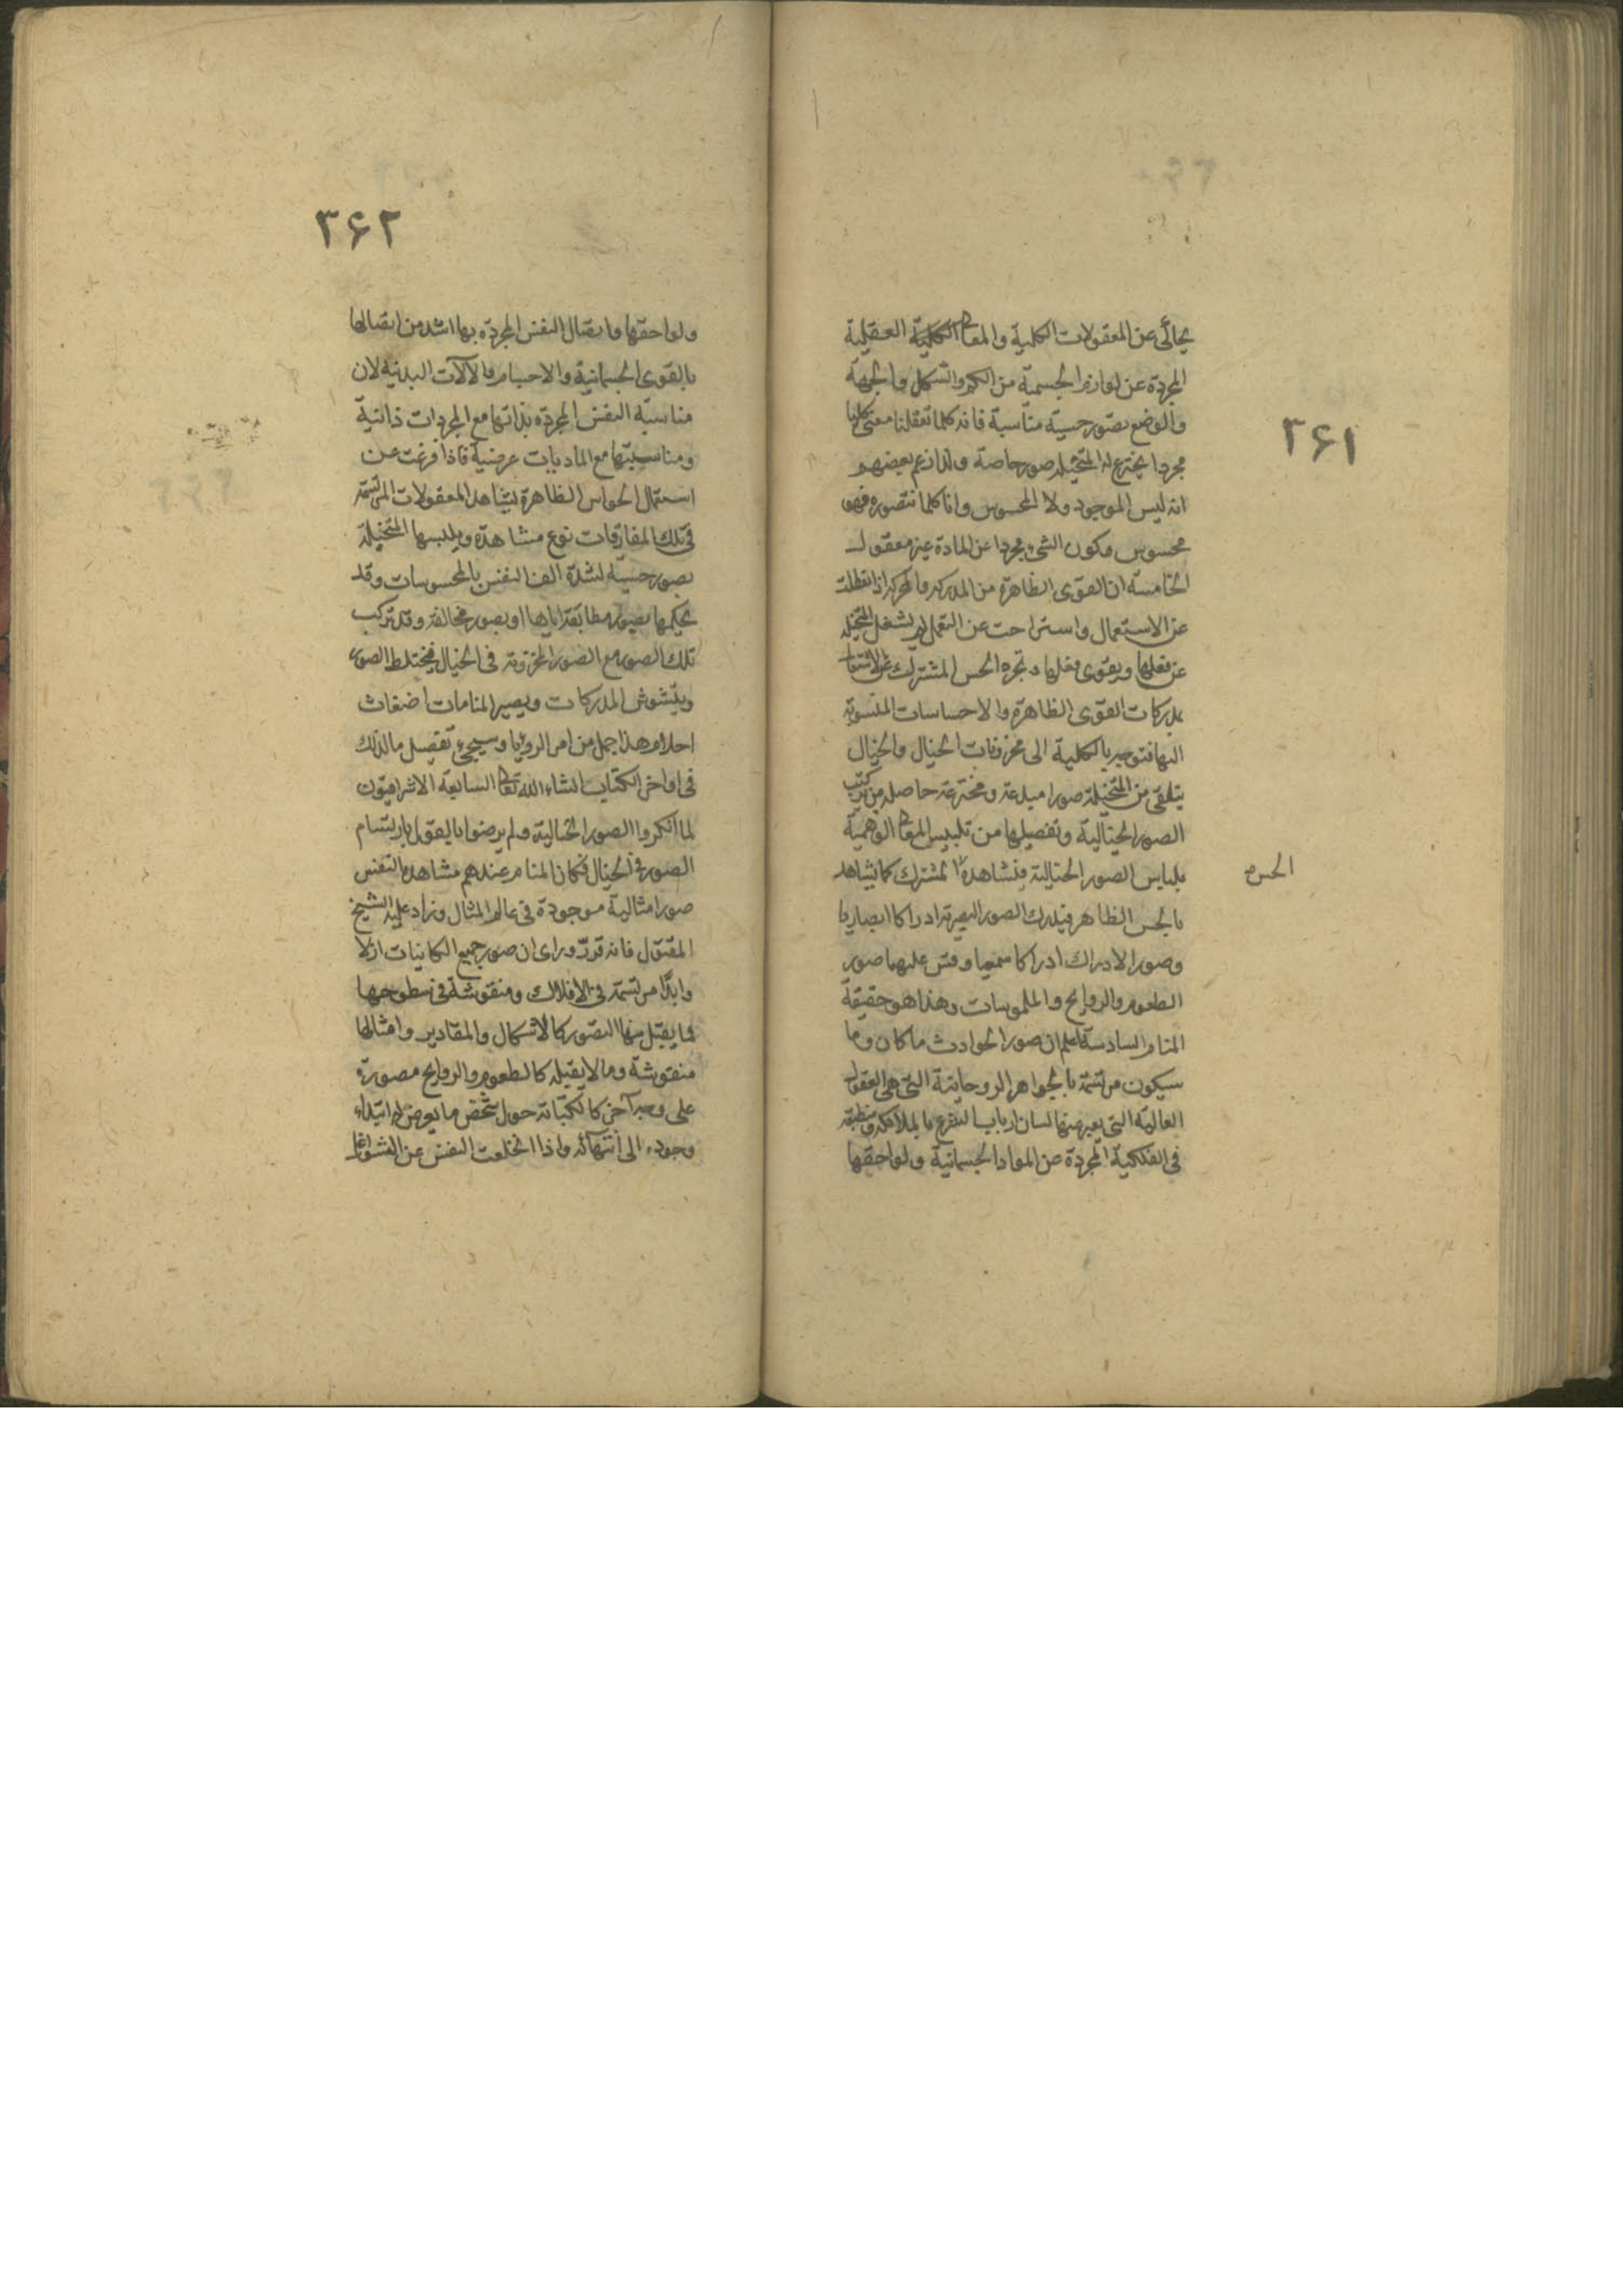 ۳۶۱
يحاكى عن المعقولات الكلية والمعانى الكلية العقلية
المجردة عن لوازم الجسمية من الكم والشكل والجهة
والوضع بصور حسية مناسبة فانه كلما تعقلنا معنى كليا
مجردا يخترع له المتخيله صور خاصة ولذا زعم بعضهم
انه ليس الموجود ولا المحسوس وانا كلما نتصوره فهو
محسوس وكون الشئ مجردا عن المادة غير معقول
الخامسة ان القوى الظاهرة من المدركه والمحركه اذا تعطلت
عن الاستعمال واستراحت عن التعمل لم يشغل المتخيله
عن فعلها ويقوى فعلها وتجرد الحس المشترك عن الاشتغال
بمدركات القوى الظاهرة والاحساسات المنسوبة
اليها فتوجه بالكلية الى مخزونات الخيال والخيال
يتلقى من المتخيلة صورا مبدعة ومخترعة حاصله من تركيب
الصور الخيالية وتفصيلها من تلبيس المعانى الوهمية
بلباس الصور الخيالية فيشاهده المشترك كما يشاهد
الحس
بالحس الظاهر فيدرك الصور البصرية ادراكا ابصاريا
وصور الادراك ادراكا سمعيا وقس عليهما صور
الطعوم والروايح والملموسات وهذا هو حقيقة
المنام السادسة اعلم ان صور الحوادث ما كان وما
سيكون مرتسمة بالجواهر الروحانية التى هى العقول
العالية التى يعبر عنها لسان ارباب الشرع بالملائكة ومنطبقه
فى الفلكية المجردة من المواد الجسمانية ولواحقها
۳۶۲
ولواحقها واتصال النفس المجردة بها اشد من اتصالها
بالقوى الجسمانية والاجسام والآلات البدنية لان
مناسبة النفس المجردة بذاتها مع المجردات ذاتية
ومناسبتها مع الماديات عرضية فاذا فرغت عن
استعمال الحواس الظاهرة يشاهد المعقولات المرتسمة
فى تلك المفارقات نوع مشاهدة ويلبسها المتخيلة
بصور حسية لشدة الف النفس بالمحسوسات وقد
يحكيها بصور مطابقة اياها او بصور مخالفة وقد تركب
تلك الصور مع الصور المخزونة فى الخيال فيختلط الصور
ويتشوش المدركات ويصير المنامات اضغاث
احلام هذا جمل من امر الرؤيا وسيجئ تفصيل ما لذلك
فى اواخر الكتاب انشاء الله تعالى السابعة الاشراقيون
لما انكروا الصور الخيالية ولم يرضوا بالقول بارتسام
الصور فى الخيال فكان المنام عندهم مشاهدة النفس
صورا مثالية موجودة فى عالم المثال وزاد عليه الشيخ
المقتول فانه قرر وراى ان صور جميع الكاينات ازلا
وابدا مرتسمة فى الافلاك ومنقوشة فى سطوحها
فما يقبل منها التصور كالاشكال والمقادير وامثالها
منقوشة وما لا يقبله كالطعوم والروايح مصورة
على وجه آخر كالكتابة حول شخص ما يعرض له ابتداء
وجوده الى انتهائه واذا انخلعت النفس عن الشواغل